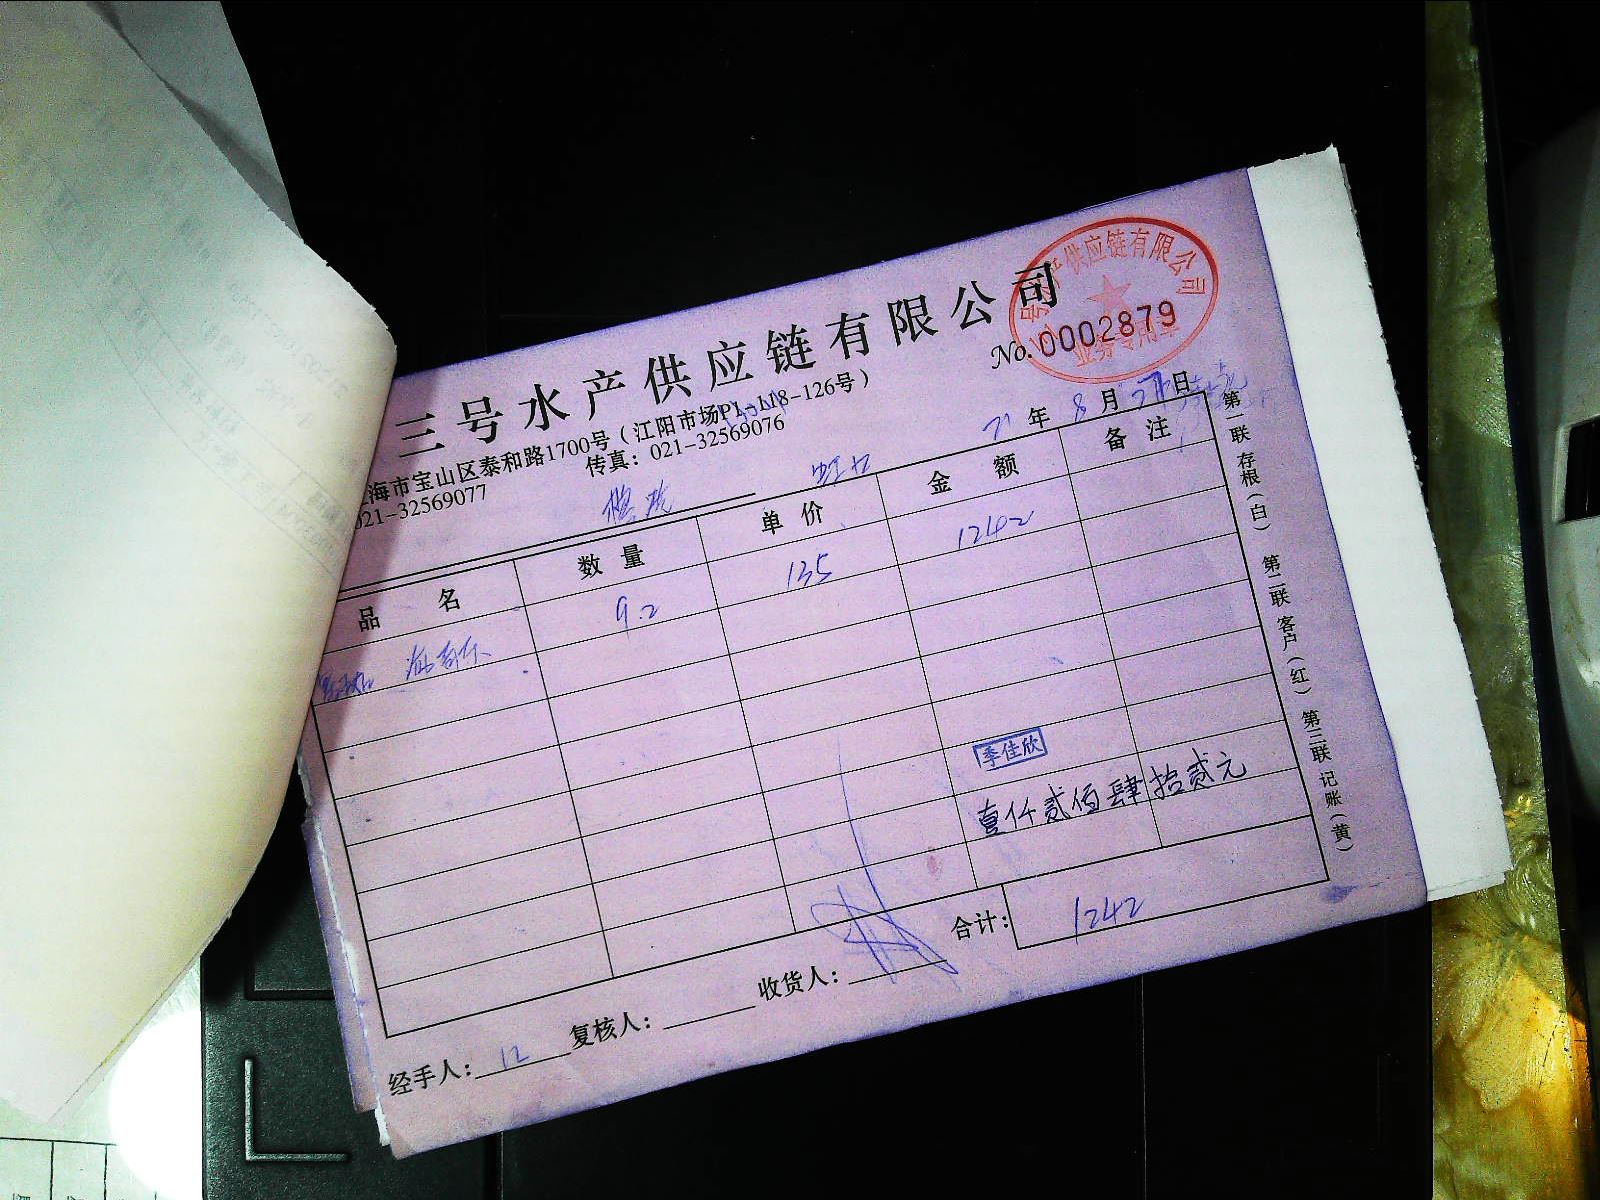 三号水产供应链有限公司
供应链有限公司
业务专用章
No. 0002879
海市宝山区泰和路1700号（江阳市场P1-118-126号）
021-32569077 传真：021-32569076
21 年 8 月 日
品 名 数 量 单 价 金 额 备 注
9.2 135 1242
季佳欣
壹仟贰佰肆拾贰元
合计： 1242
经手人： 12 复核人： 收货人：
第一联 存根（白） 第二联 客户（红） 第三联 记账（黄）